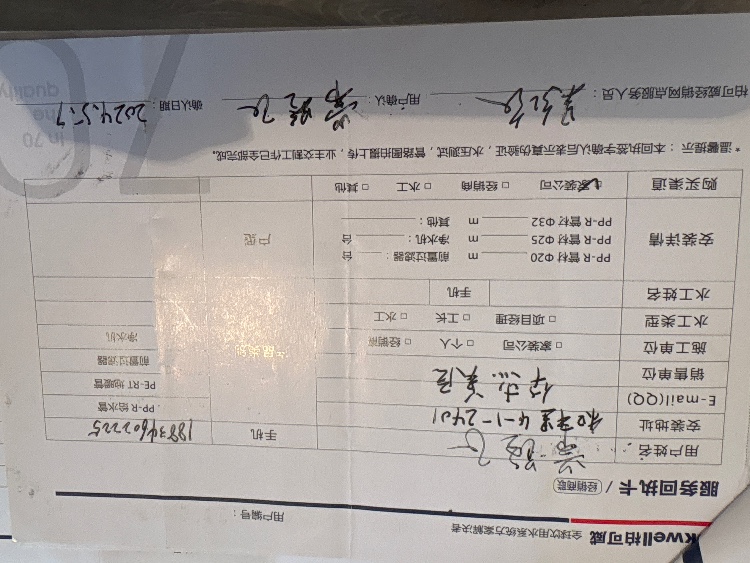 Kwell柏可威 全球饮用水系统方案解决者
用户编号：
服务回执卡 / 经销商联
用户姓名 手机 18834602225
安装地址 4-1-2401
E-mail(QQ)
销售单位
施工单位 □ 家装公司 □ 个人 □ 经销商
水工类型 □ 项目经理 □ 工长 □ 水工
水工姓名 手机
产品类别
PP-R 给水管
PE-RT 地暖管
前置过滤器
净水机
安装详情 户型
PP-R 管材 Φ20 m 前置过滤器： 台
PP-R 管材 Φ25 m 净水机： 台
PP-R 管材 Φ32 m 其他：
购买渠道 ☑ 家装公司 □ 经销商 □ 水工 □ 其他
*温馨提示：本回执签字确认后表示真伪验证，水压测试，管路图拍摄上传，业主交割工作已全部完成。
柏可威经销网点服务人员： 用户确认： 确认日期：2024.5.7
in 70
the
quality
70